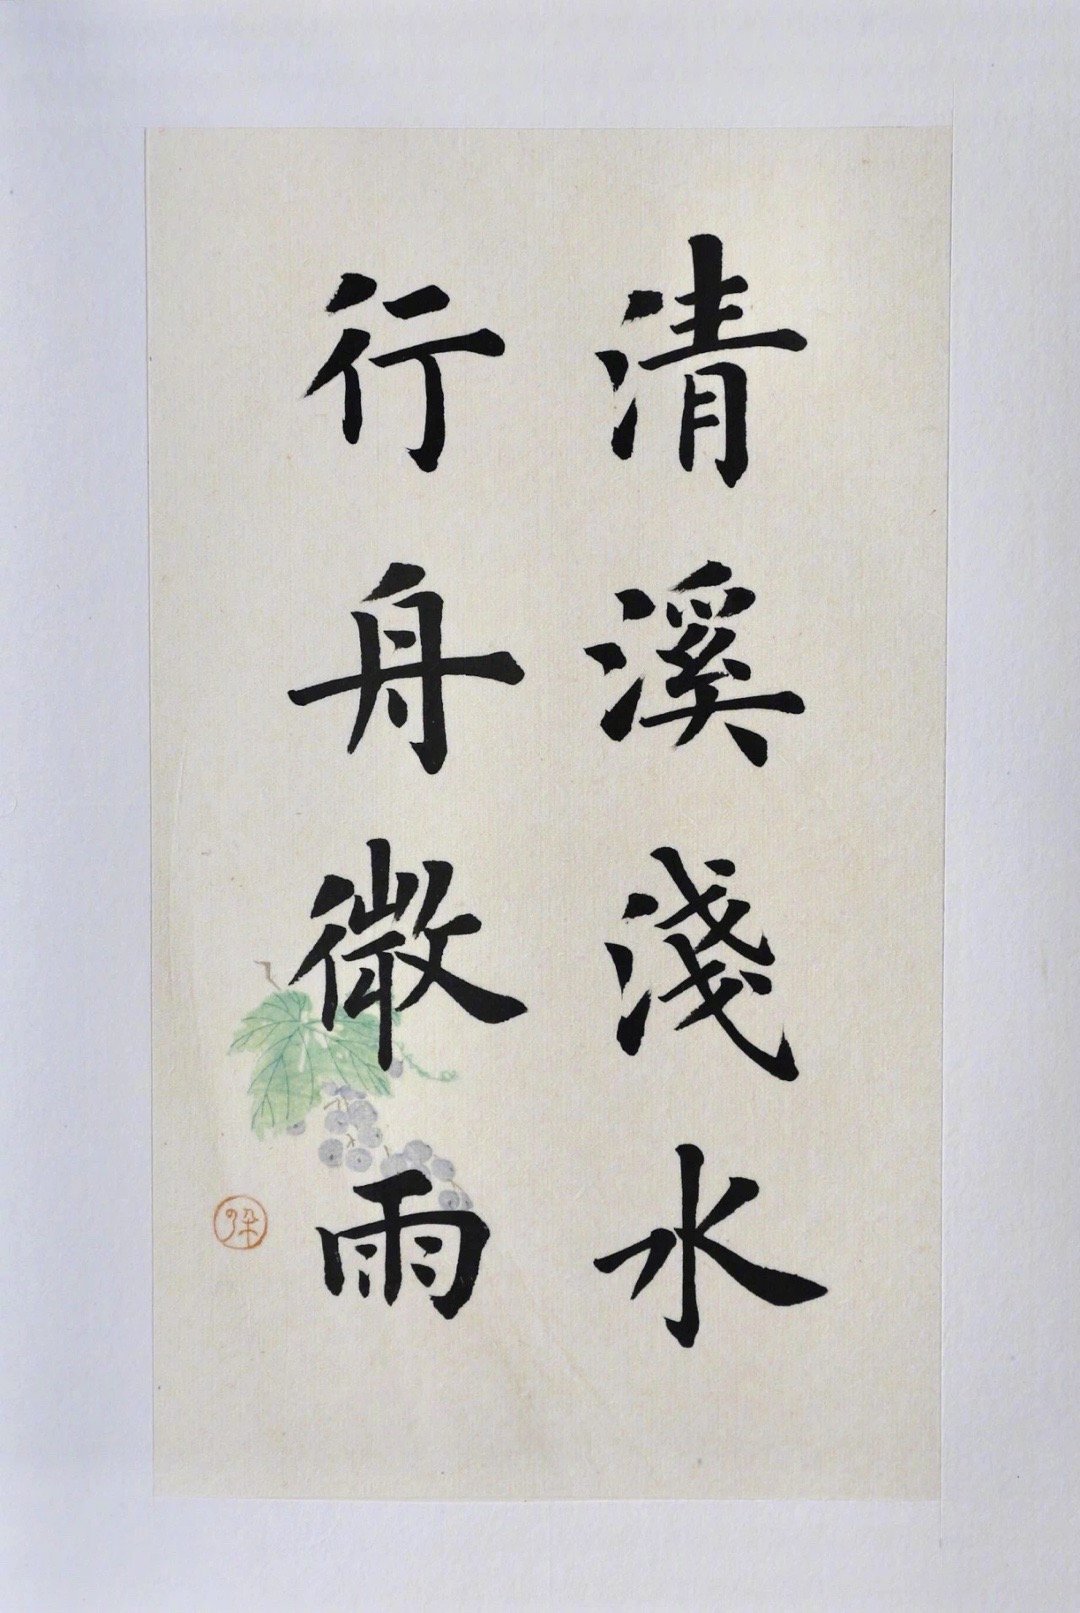 清溪淺水
行舟微雨